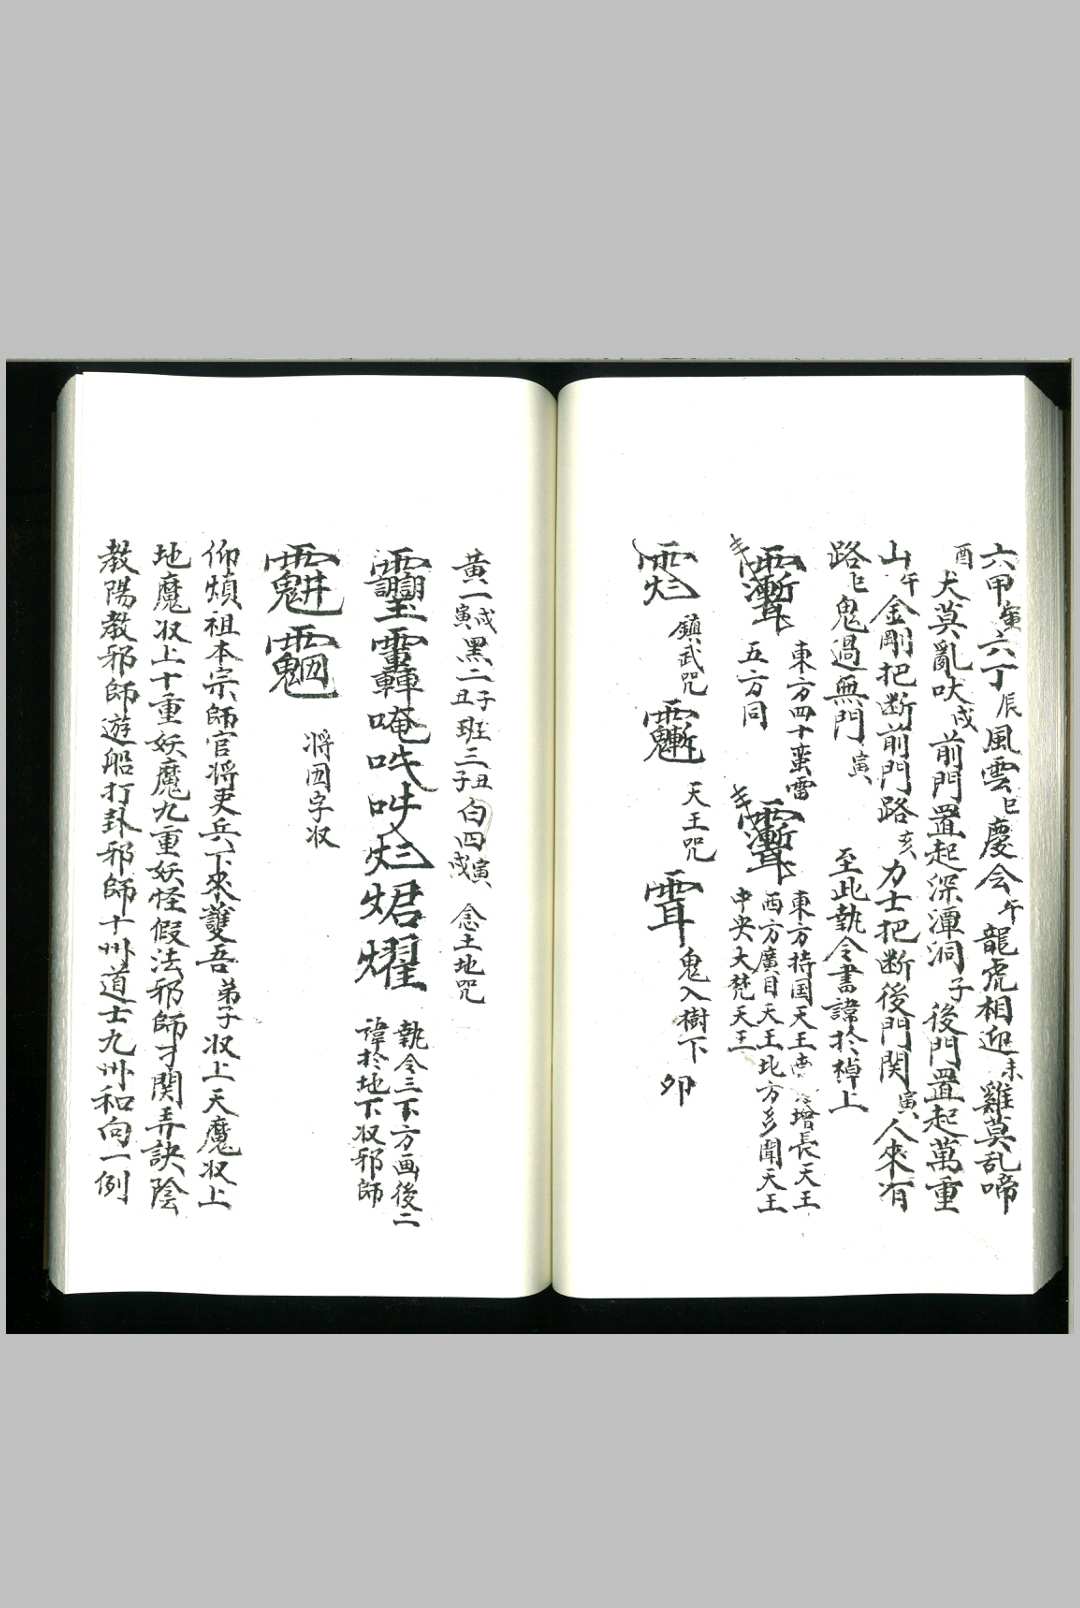 六甲寅六丁辰風雲巳慶会午龍虎相迎未雞莫乱啼
酉犬莫亂吠戌前門置起深潭洞子後門置起萬重
山午金剛把断前門路亥力士把断後門関寅人來有
路巳鬼過無門寅 至此執令書諱於棹上
東方四十蛮雷
五方同
東方持国天王 增長天王
西方廣目天王北方多聞天王
中央大梵天王
鎮武咒
天王咒
鬼入樹下 卯
黃一戌寅黑二子丑班三丑子白四寅戌 念土地咒
唵
執令三下方画後二
諱於地下収邪師
将囡字収
仰煩祖本宗師官将吏兵下來護吾弟子収上天魔収上
地魔収上十重妖魔九重妖怪假法邪師才関弄訣陰
教陽教邪師遊船打卦邪師十州道士九州和向一例